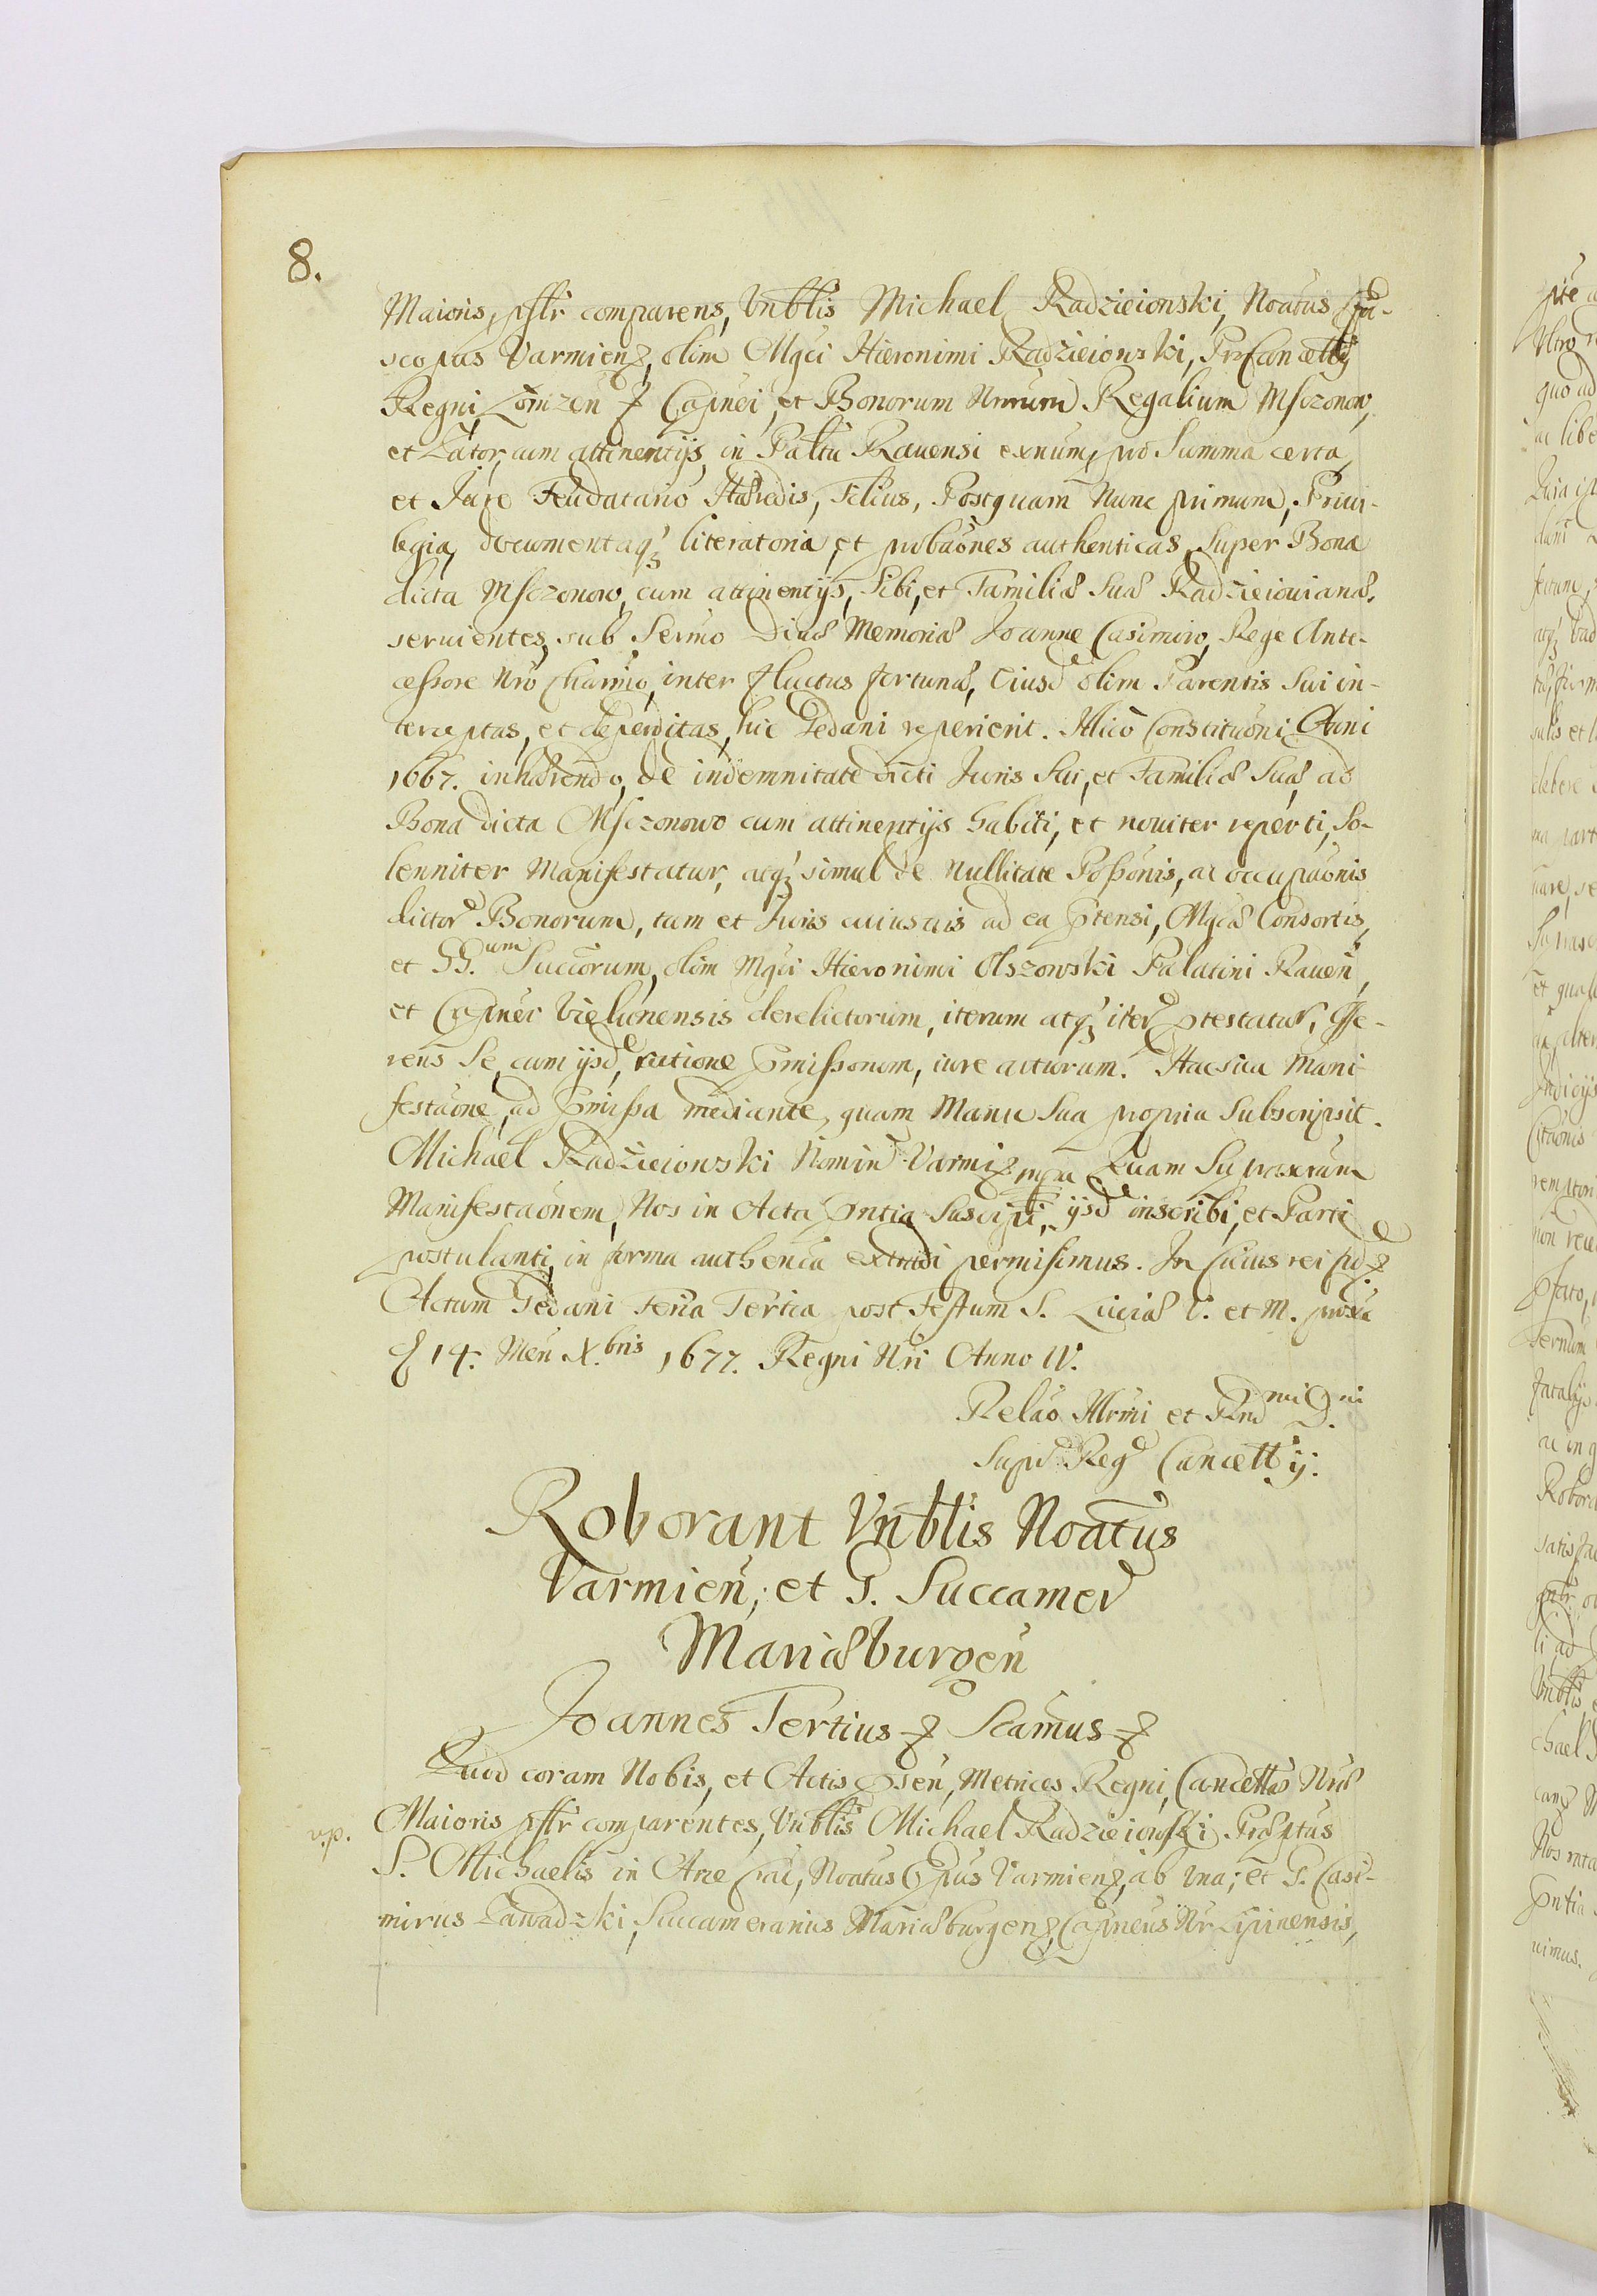 8.
Maioris, psltr comparens, Vnblis Michael Radzieionski, Noatus Epi-
scopus Varmien, olim Mgci Hieronimi Radzieionski, ProCancellrij
Regni, Lomzen Capnei, et Bonorum Nrorum Regalium Msczonow,
et Zator, cum attinentijs, in Paltu Rauensi exñum, pro Summa certa,
et Jure Feudatario Hæredis, Filius, Postquam Nunc primum, Priui-
legia, documentaq, literatoria, et probaones authenticas, Super Bona
dicta Msczonow, cum attinentijs, Sibi, et Familiæ Suæ Radzieiouianæ,
seruientes, sub Sermo Diuæ Memoriæ Joanne Casimiro, Rege Ante-
cessore Nro Charmo, inter fluctus fortunæ, Eiusd olim Parentis Sui in-
terceptas, et deperditas, hic Gedani reperierit. Illico Constituoni Anni
1667. inhærendo, de indemnitate dicti Juris Sui, et Familiæ Suæ, ad
Bona dicta Msczonow cum attinentijs habiti, et nouiter reperti, So-
lenniter Manifestatur, atq simul de Nullitate Possonis, ac occupaonis
dictor Bonorum, tam et Juris cuiusuis ad ea ptensi, Mgcæ Consortis,
et GG.um Succorum, olim Mgci Hieronimi Olszowski Palatini Rauen,
et Capnei Vielunensis derelictorum, iterum atq iter ptestatur, Offe-
rens Se, cum ijsd, ratione pmissorum, iure acturum. Hac sua Mani-
festaone, ad pmissa mediante, quam Manu Sua propria Subscripsit.
Michael Radzieionski Nomin Varmi mpa Quam Supraxtam
Manifestaonem, Nos in Acta pntia Suscipi, ijsd inscribi, et Parti
postulanti, in forma authenca extradi permisimus. In Cuius rei fid
Actum Gedani Feria Tertia post Festum S. Luciæ V. et M. proxa
14. Men X.bris 1677. Regni Nri Anno IV.
Relao Illrmi et Rnd mi D.ni
Supr Reg Cancellrij:
Roborant Vnblis Noatus
Varmien; et G. Succamer
Mariæburgen
Joannes Tertius Scamus
Quod coram Nobis, et Actis psen, Metrices Regni, Cancellæ Nræ
v.p. Maioris psltr comparentes, Vnblis Michael Radzieiowski Præptus
S. Michaelis in Arce Crac, Noatus Eppus Varmien, ab Vna; et G. Casi-
mirus Zawadzki, Succamerarius Mariæburgen, Capneus Nr Lipinensis,